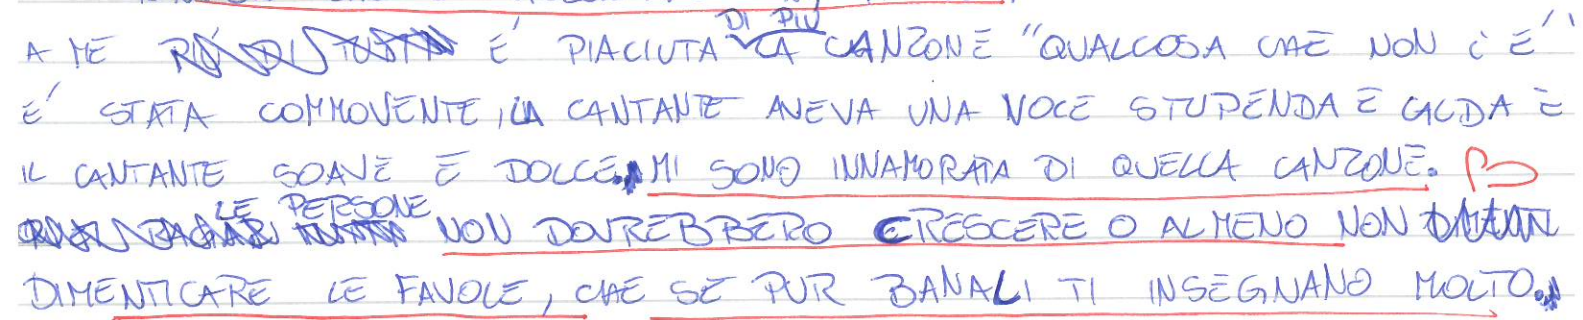 A ME È PIACIUTA DI PIÙ LA CANZONE "QUALCOSA CHE NON C'È"
E' STATA COMMOVENTE, LA CANTANTE AVEVA UNA VOCE STUPENDA E CALDA E
IL CANTANTE SOAVE E DOLCE. MI SONO INNAMORATA DI QUELLA CANZONE.
LE PERSONE NON DOVREBBERO CRESCERE O ALMENO NON
DIMENTICARE LE FAVOLE, CHE SE PUR BANALI TI INSEGNANO MOLTO.